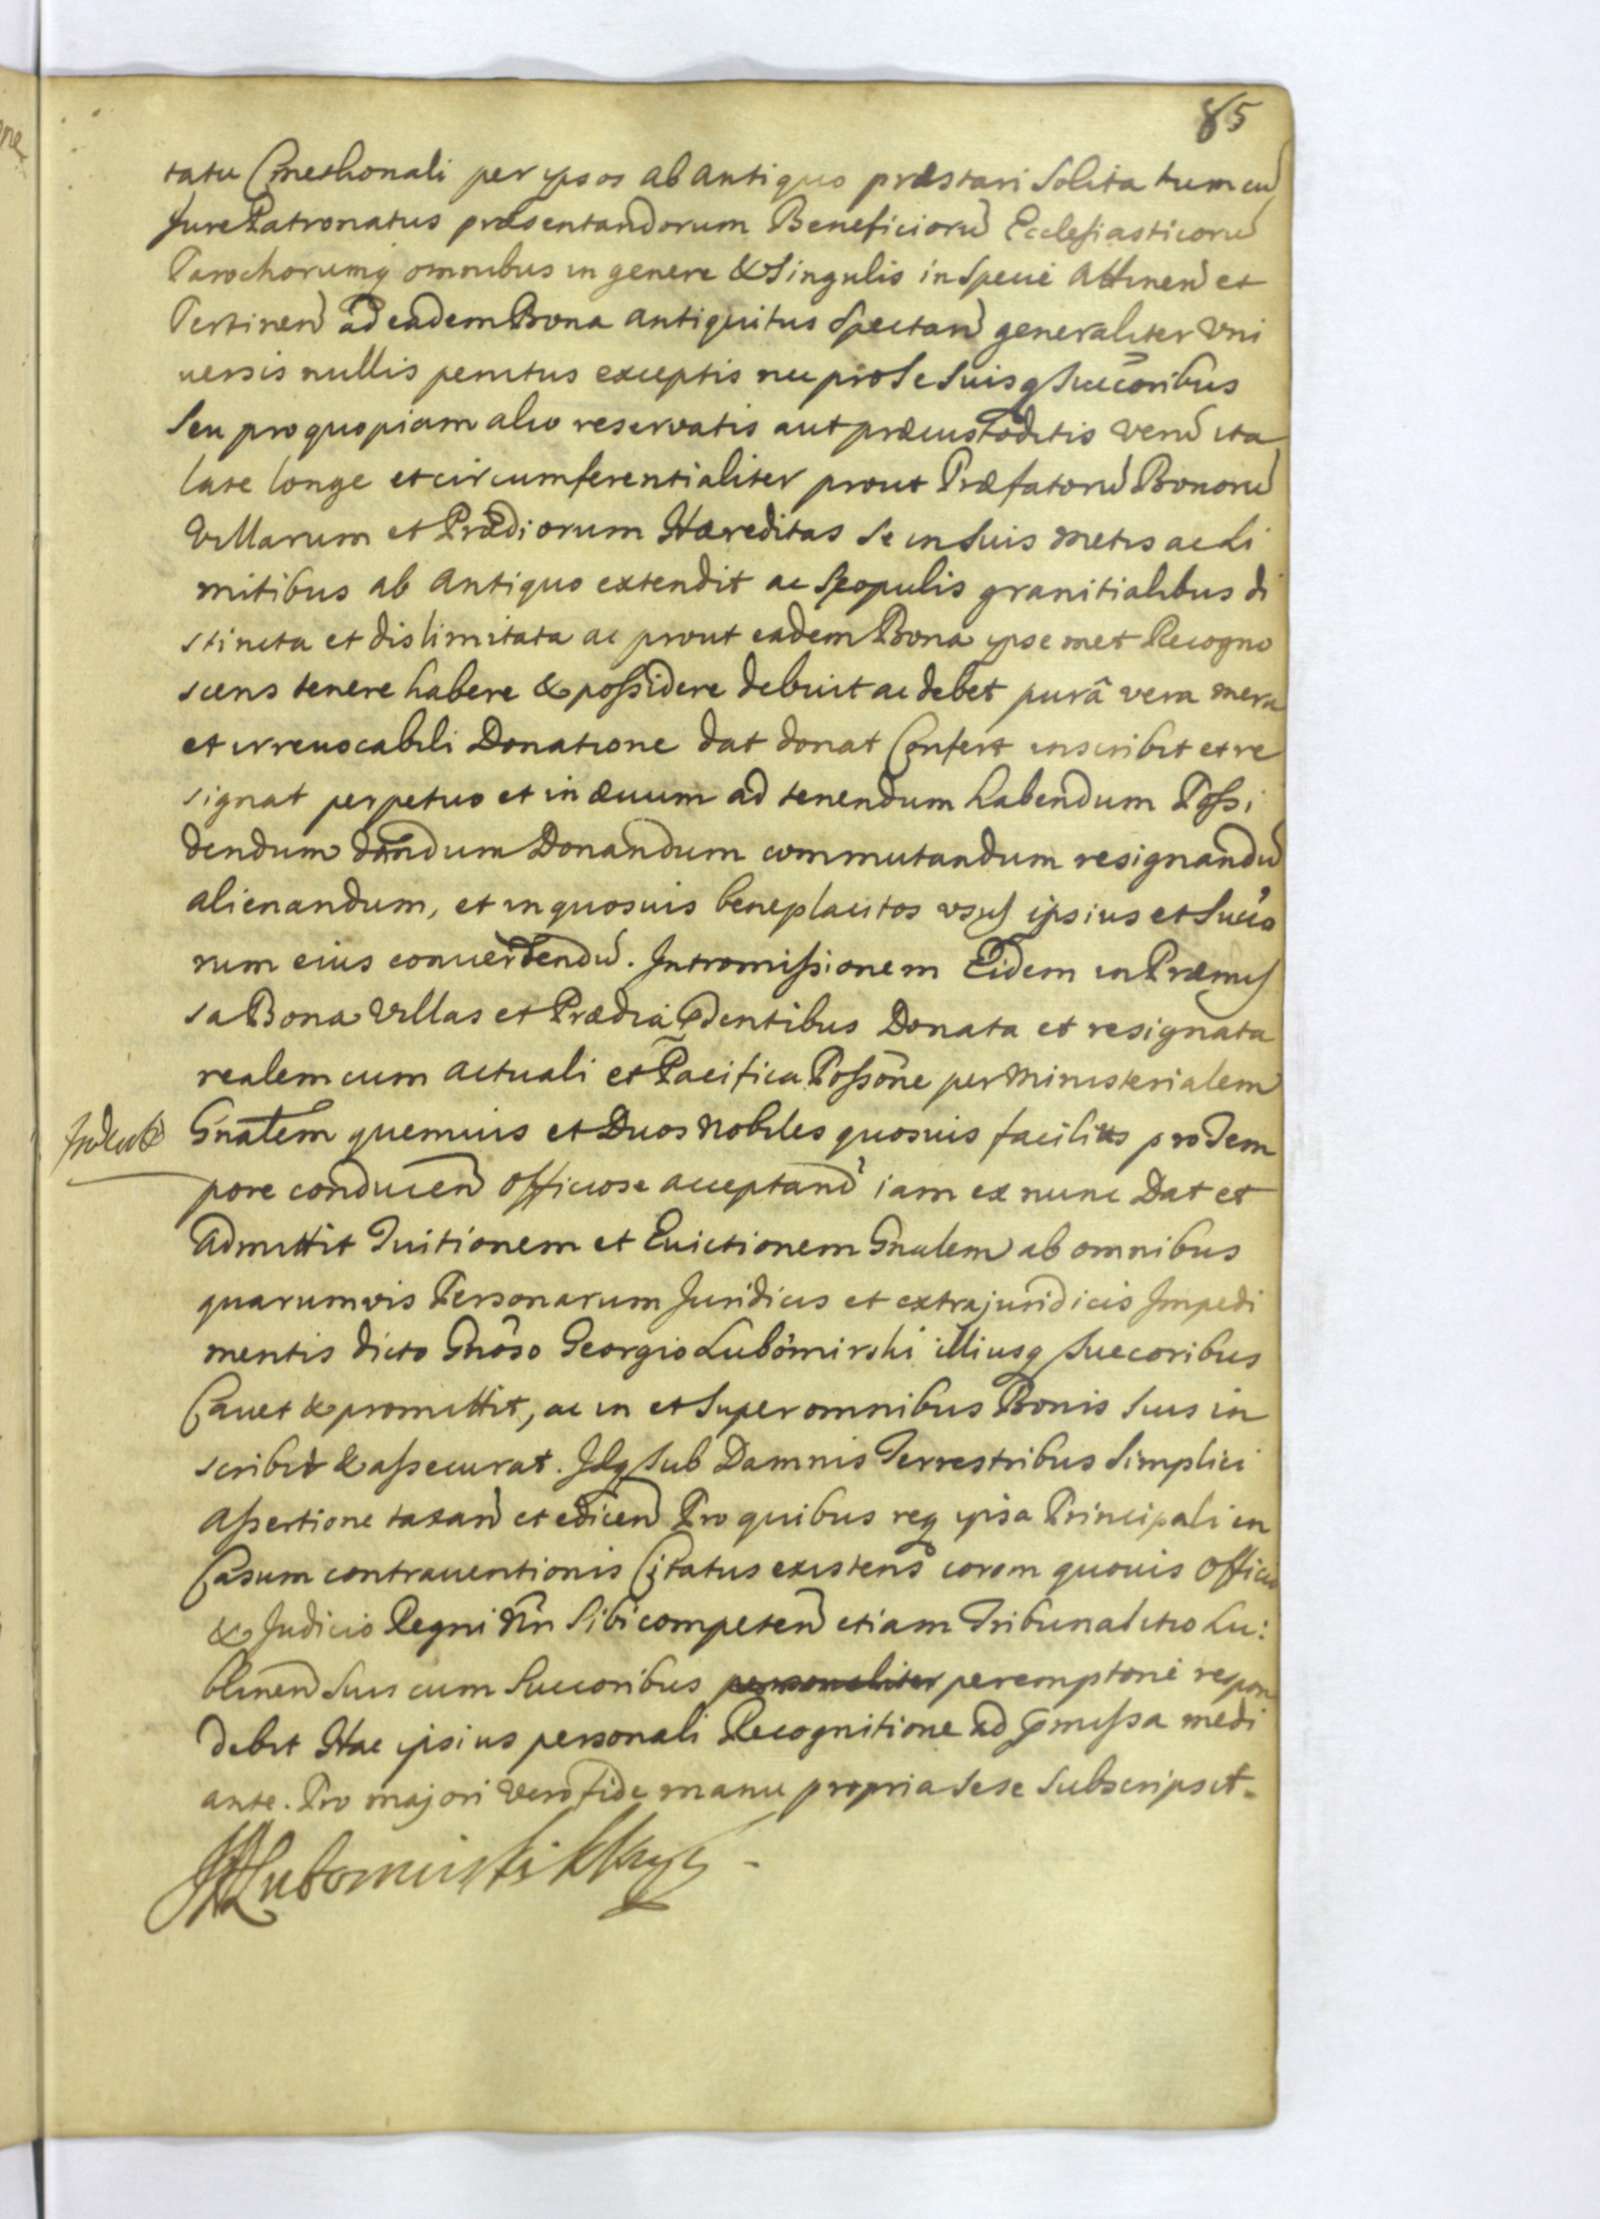 85
tatu Cmethonali per ypsos ab antiquo præstari Solita tum cu
Jure Patronatus præsentandorum Beneficiorũ Ecclesiasticorũ
Parochorumq omnibus in genere & Singulis in Specie Attinen et
Pertinen ad eadem Bona antiquitus Spectan generaliter Vni
uersis nullis penitus exceptis nec pro Se Suisq Succoribus
Seu pro quopiam alio reservatis aut præcustoditis Verũ ita
late longe et circumferentialiter prout Præfatorũ Bonorũ
Villarum et Prædiorum Hæreditas Se in Suis Metis ac Li
mitibus ab antiquo extendit ac Scopulis granitialibus di
stincta et dislimitata ac prout eadem Bona ypse met Recogno
scens tenere habere & possidere debuit ac debet purâ vera mera
et irreuocabili Donatione dat donat Confert inscribit et re
signat perpetuo et in æuum ad tenendum habendum Possi
dendum dandum Donandum commutandum resignandũ
alienandum, et in quosuis beneplacitos vsus ipsius et Succo
rum eius conuertendũ. Intromissionem Eidem in Præmis
sa Bona Villas et Prædia Pdentibus Donata et resignata
realem cum actuali et Pacifica Possõne per Ministerialem
Gnalem quemuis et Duos Nobiles quosuis facilius pro Tem
pore conducen officiose acceptand iam ex nunc Dat et
Admittit Tuitionem et Euictionem Gnalem ab omnibus
quarumvis Personarum Juridicis et extrajuridicis Impedi
mentis dicto Gnõso Georgio Lubomirski illiusq Succoribus
Cauet & promittit, ac in et Super omnibus Bonis Suis in
scribit & assecurat. Idq Sub Damnis Terrestribus Simplici
Assertione taxan et edicen Pro quibus req ypsa Principali in
Casum contrauentionis Citatus existens coram quouis Officio
& Judicio Regni Nn Sibi competen etiam Tribunalitio Lu:
blinen Suis cum Succoribus personaliter peremptorie respon
debit Hac ipsius personali Recognitione ad pmissa medi
ante. Pro majori Vero fide manu propria Sese Subscripsit.
Lubomirski